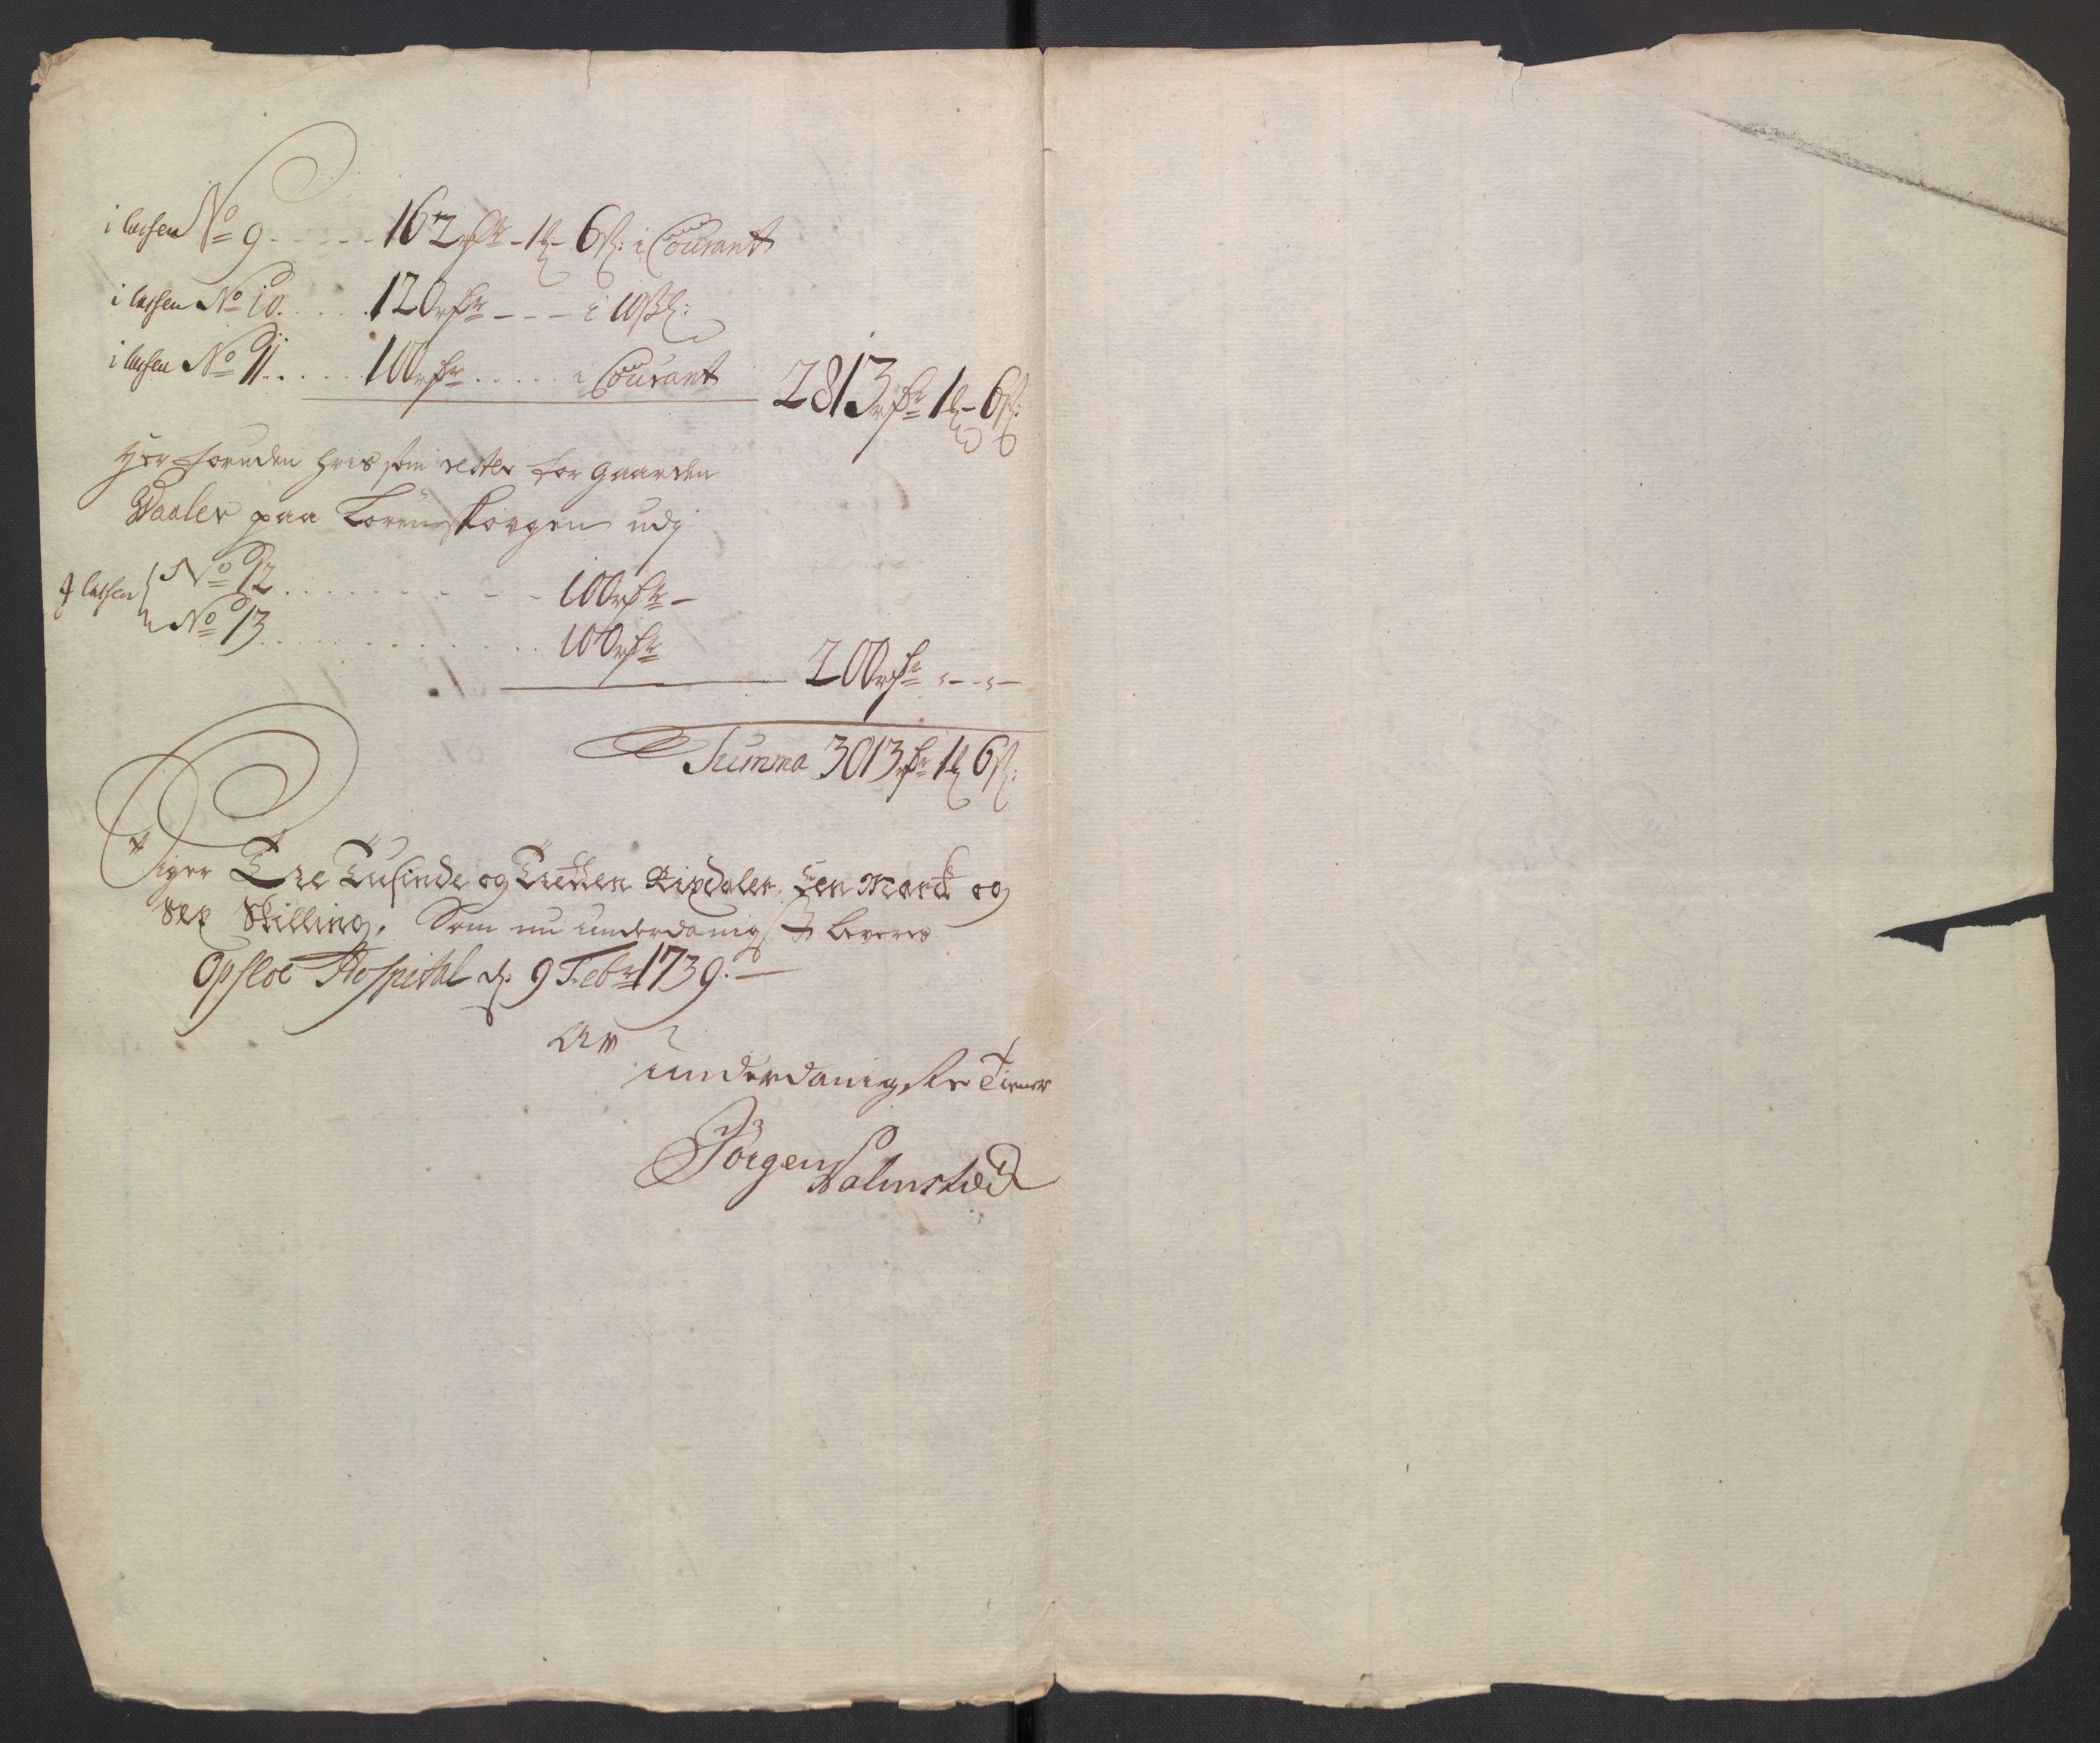 i cassen No 9 . . . . . 162 rdr - 1 mk - 6 sk: i Courant
i cassen No 10 . . . . . 120 rdr - - - i 10 sk:
i cassen No 11 . . . . . 100 rdr . . . . . i Courant 2813 rdr 1 mk - 6 sk:
Her foruden hvis som rester for gaarden
Waaler paa Lorenskovgen udj
J cassen { No 12 . . . . . . . . 100 rdr -
No 13 . . . . . . . . . . . 100 rdr
200 rdr " - " -
Summa 3013 rdr 1 mk 6 sk:
Siger Tre Tusinde og Tretten Rixdaler, Een Marck og
Sex Skilling, Som nu underdanigst leveres
Opsloe Hospital d: 9 Febr 1739. -
Av
underdanigste Tiener
Jörgen Halmstæd